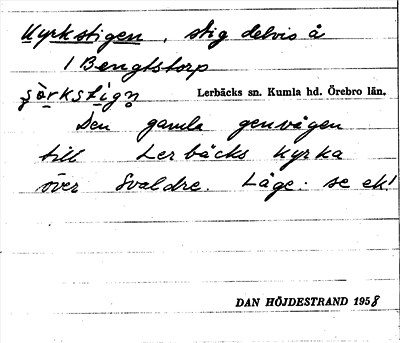 Kyrkstigen, stig delvis å
1 Bengtstorp
Lerbäcks sn. Kumla hd. Örebro län.
Den gamla genvägen
till Lerbäcks Kyrka
över Svaldre. Läge: se ek!
DAN HÖJDESTRAND 1958